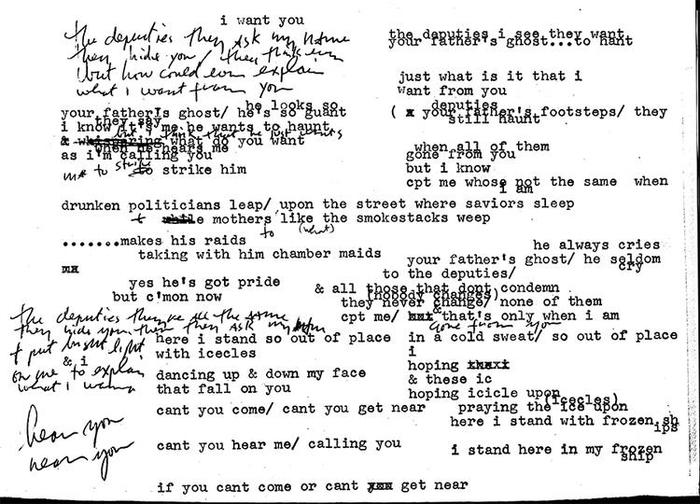 i want you
the deputies they ask my name
they hide you/ they think im
but how could even explain
what i want from you
the deputies i see they want
your father's ghost...to hant
just what is it that i
want from you
he looks so
your fatherIs ghost/ he's so guant
they say
i know it's me he wants to haunt
& what do you want
when he hears me
as i'm calling you
me to strike
to strike him
deputies
( x your father's footsteps/ they
still haunt
when all of them
gone from you
but i know
cpt me whose not the same when
i am
drunken politicians leap/ upon the street where saviors sleep
& while mothers like the smokestacks weep
to (what)
.......makes his raids
taking with him chamber maids
mx
yes he's got pride
but c'mon now
he always cries
your father's ghost/ he seldom
cry
to the deputies/
& all those that dont condemn
(nobody changes)
they never change/ none of them
&
cpt me/ that's only when i am
gone from you
the deputies see the same
they hide you then they ask my
& put bright light
on me to explain
what i wanna
here i stand so out of place
with icecles
& i
dancing up & down my face
that fall on you
in a cold sweat/ so out of place
i
hoping
& these ic
hoping icicle upon
(icecles)
praying the ice upon
cant you come/ cant you get near
here i stand with frozen sh
ips
hear you
near you
cant you hear me/ calling you
i stand here in my frozen
ship
if you cant come or cant get near